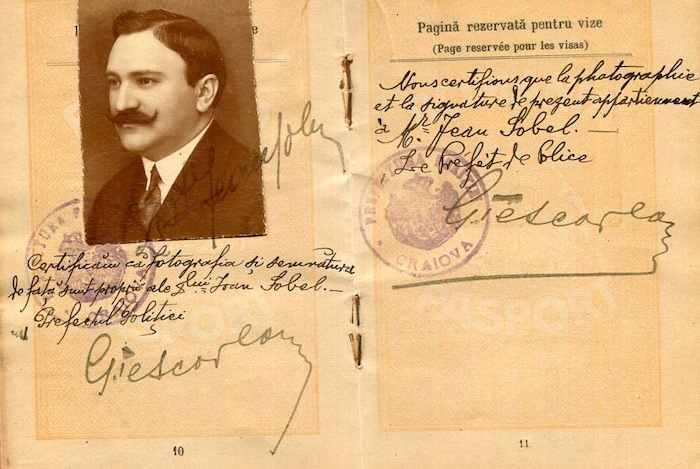 Certificăm că fotografia și semnătura
de față sunt proprii ale Dlui Joan Sobel. —
Prefectul Poliției
10
Pagină rezervată pentru vize
(Page reservée pour les visas)
Nous certifions que la photographie
et la signature de prezent appartiennent
à Mr. Jean Sobel. —
Le Préfet de Police
CRAIOVA
PASSPORT
11